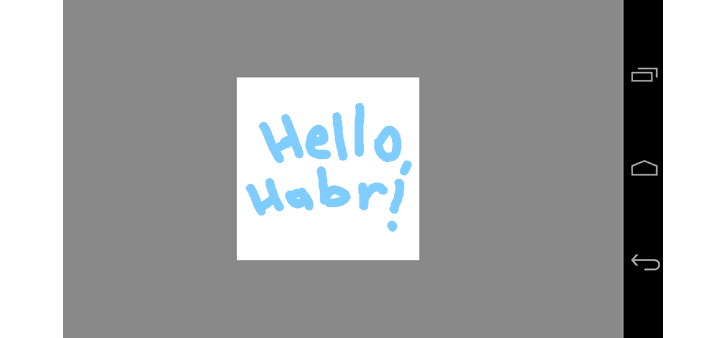 Hello,
Habr!